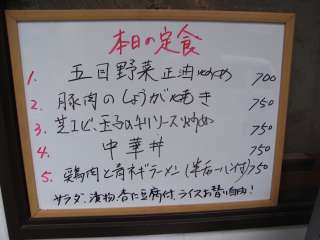 本日の定食
1. 五目野菜正油炒め 700
2. 豚肉のしょうがやき 750
3. 芝エビ、玉子のチリソース炒め 750
4. 中華丼 750
5. 鶏肉と青ネギラーメン(半チャーハン付) 750
サラダ、漬物、杏仁豆腐付、ライスお替り自由!